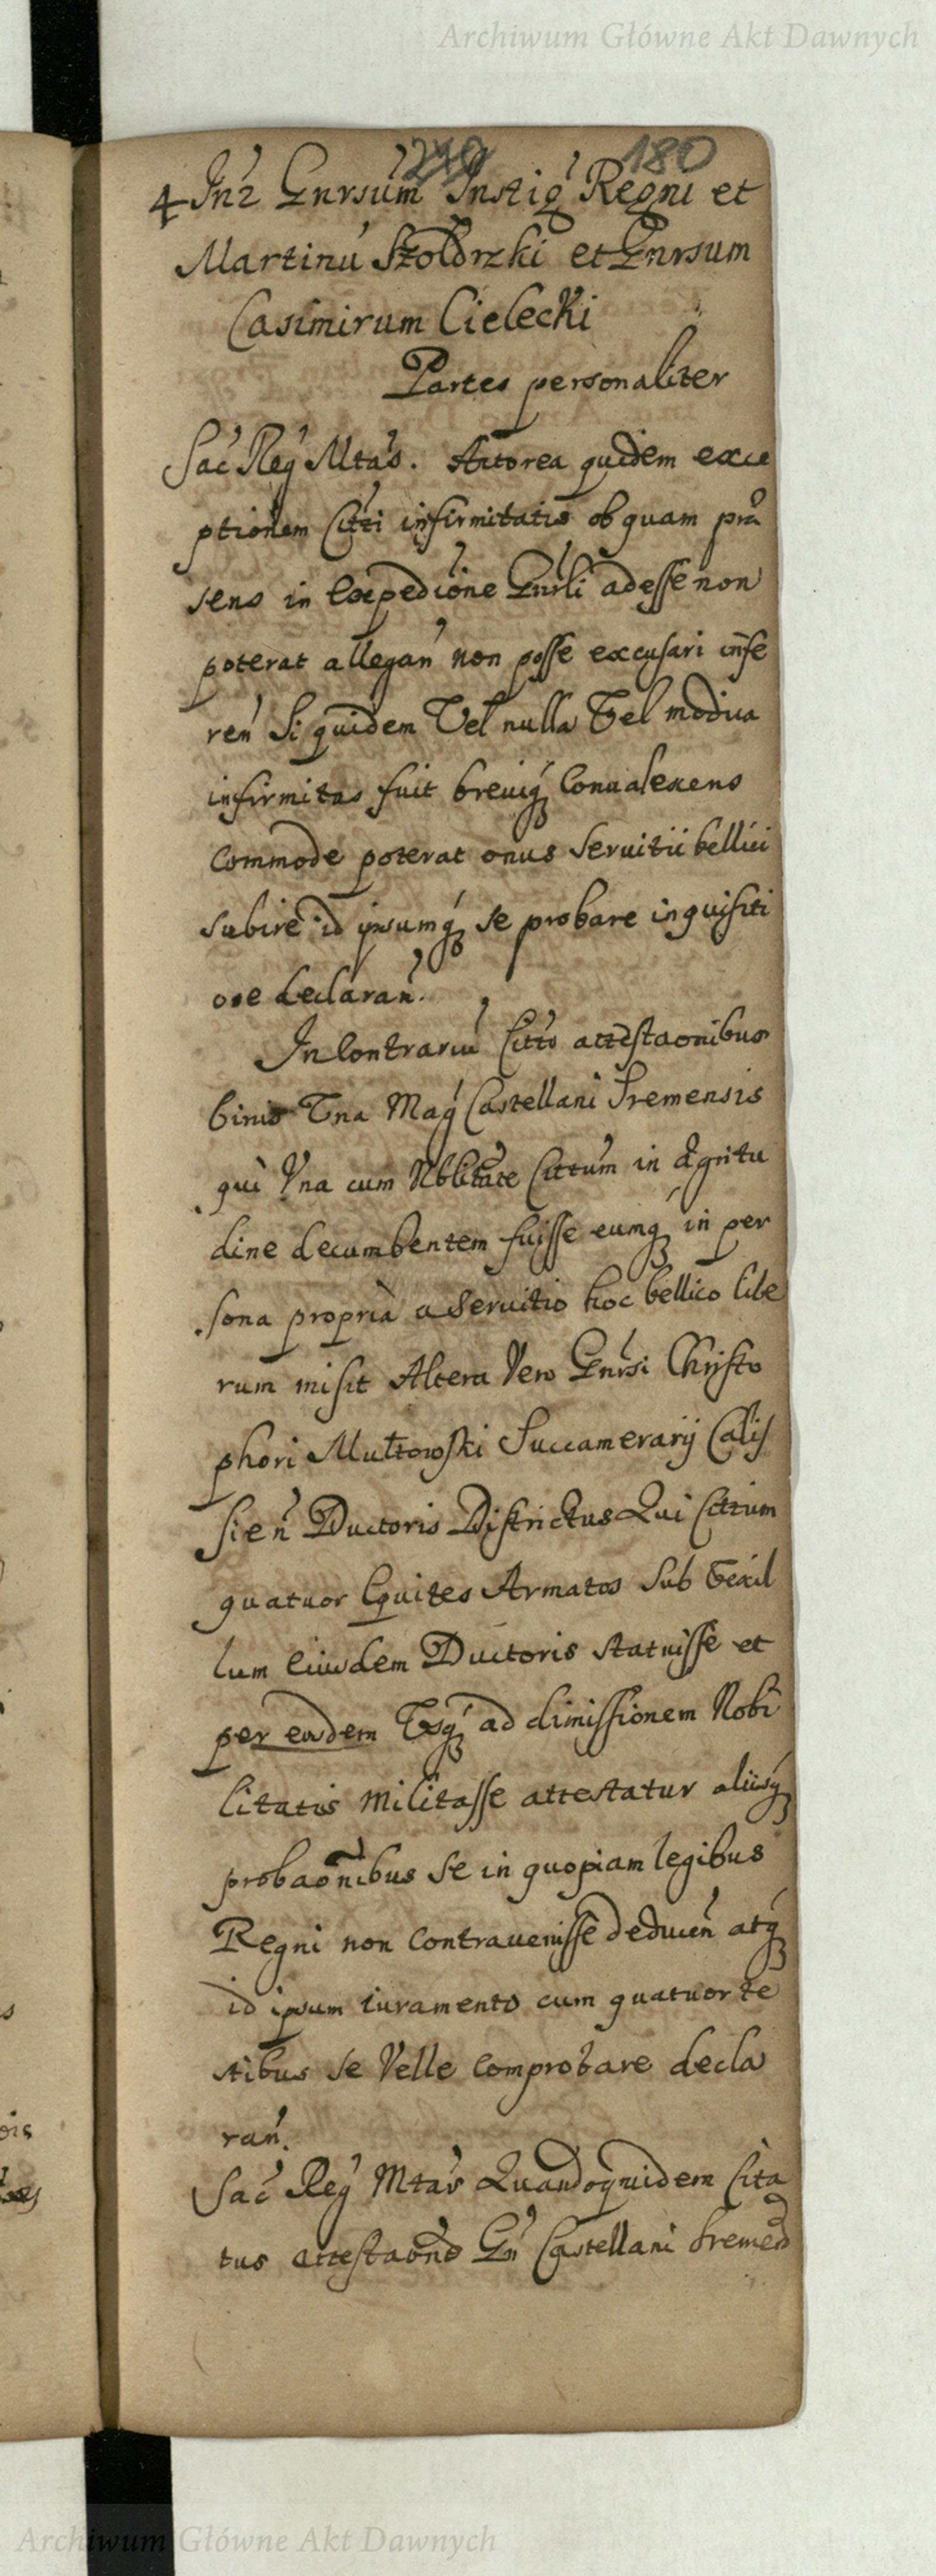 Archiwum Główne Akt Dawnych
180
4 Int' Gnrsum Instig' Regni et
Martinu' Szołdrzki et Gnrsum
Casimirum Cielecki
Partes personaliter
Sac' Reg' Mtas'. Actorea quidem exce
ptionem Citti infirmitatis ob quam præ
sens in Expedi'one Gnrli adesse non
poterat allegan' non posse excusari infe
ren' Si quidem Vel nulla Vel modica
infirmitas fuit breuiq' Conualescens
Commode poterat onus Seruitii bellici
subire id ipsumq' se probare inquisiti
one declaran'.
In Contrariu' Citts' attestaonibus
binis Una Mag' Castellani Sremensis
qui Vna cum Nblitate Cittum in ægritu
dine decumbentem fuisse eumq' in per
sona propria a Seruitio hoc bellico libe
rum misit Altera Vero Gnrsi Christo
phori Succamerarij Calis
sien' Ductoris Districtus Qui Cittum
quatuor Equites Armatos Sub Vexil
lum eiusdem Ductoris statuisse et
per eosdem Vsq' ad dimissionem Nobi
litatis Militasse attestatur aliisq'
probaonibus Se in quopiam legibus
Regni non Contrauenisse deducen' atq'
id ipsum iuramento cum quatuor te
stibus se Velle Comprobare decla
ran'.
Sac' Reg' Mtas' Quandoquidem Cita
tus Gn' Castellani Sremen
Archiwum Główne Akt Dawnych